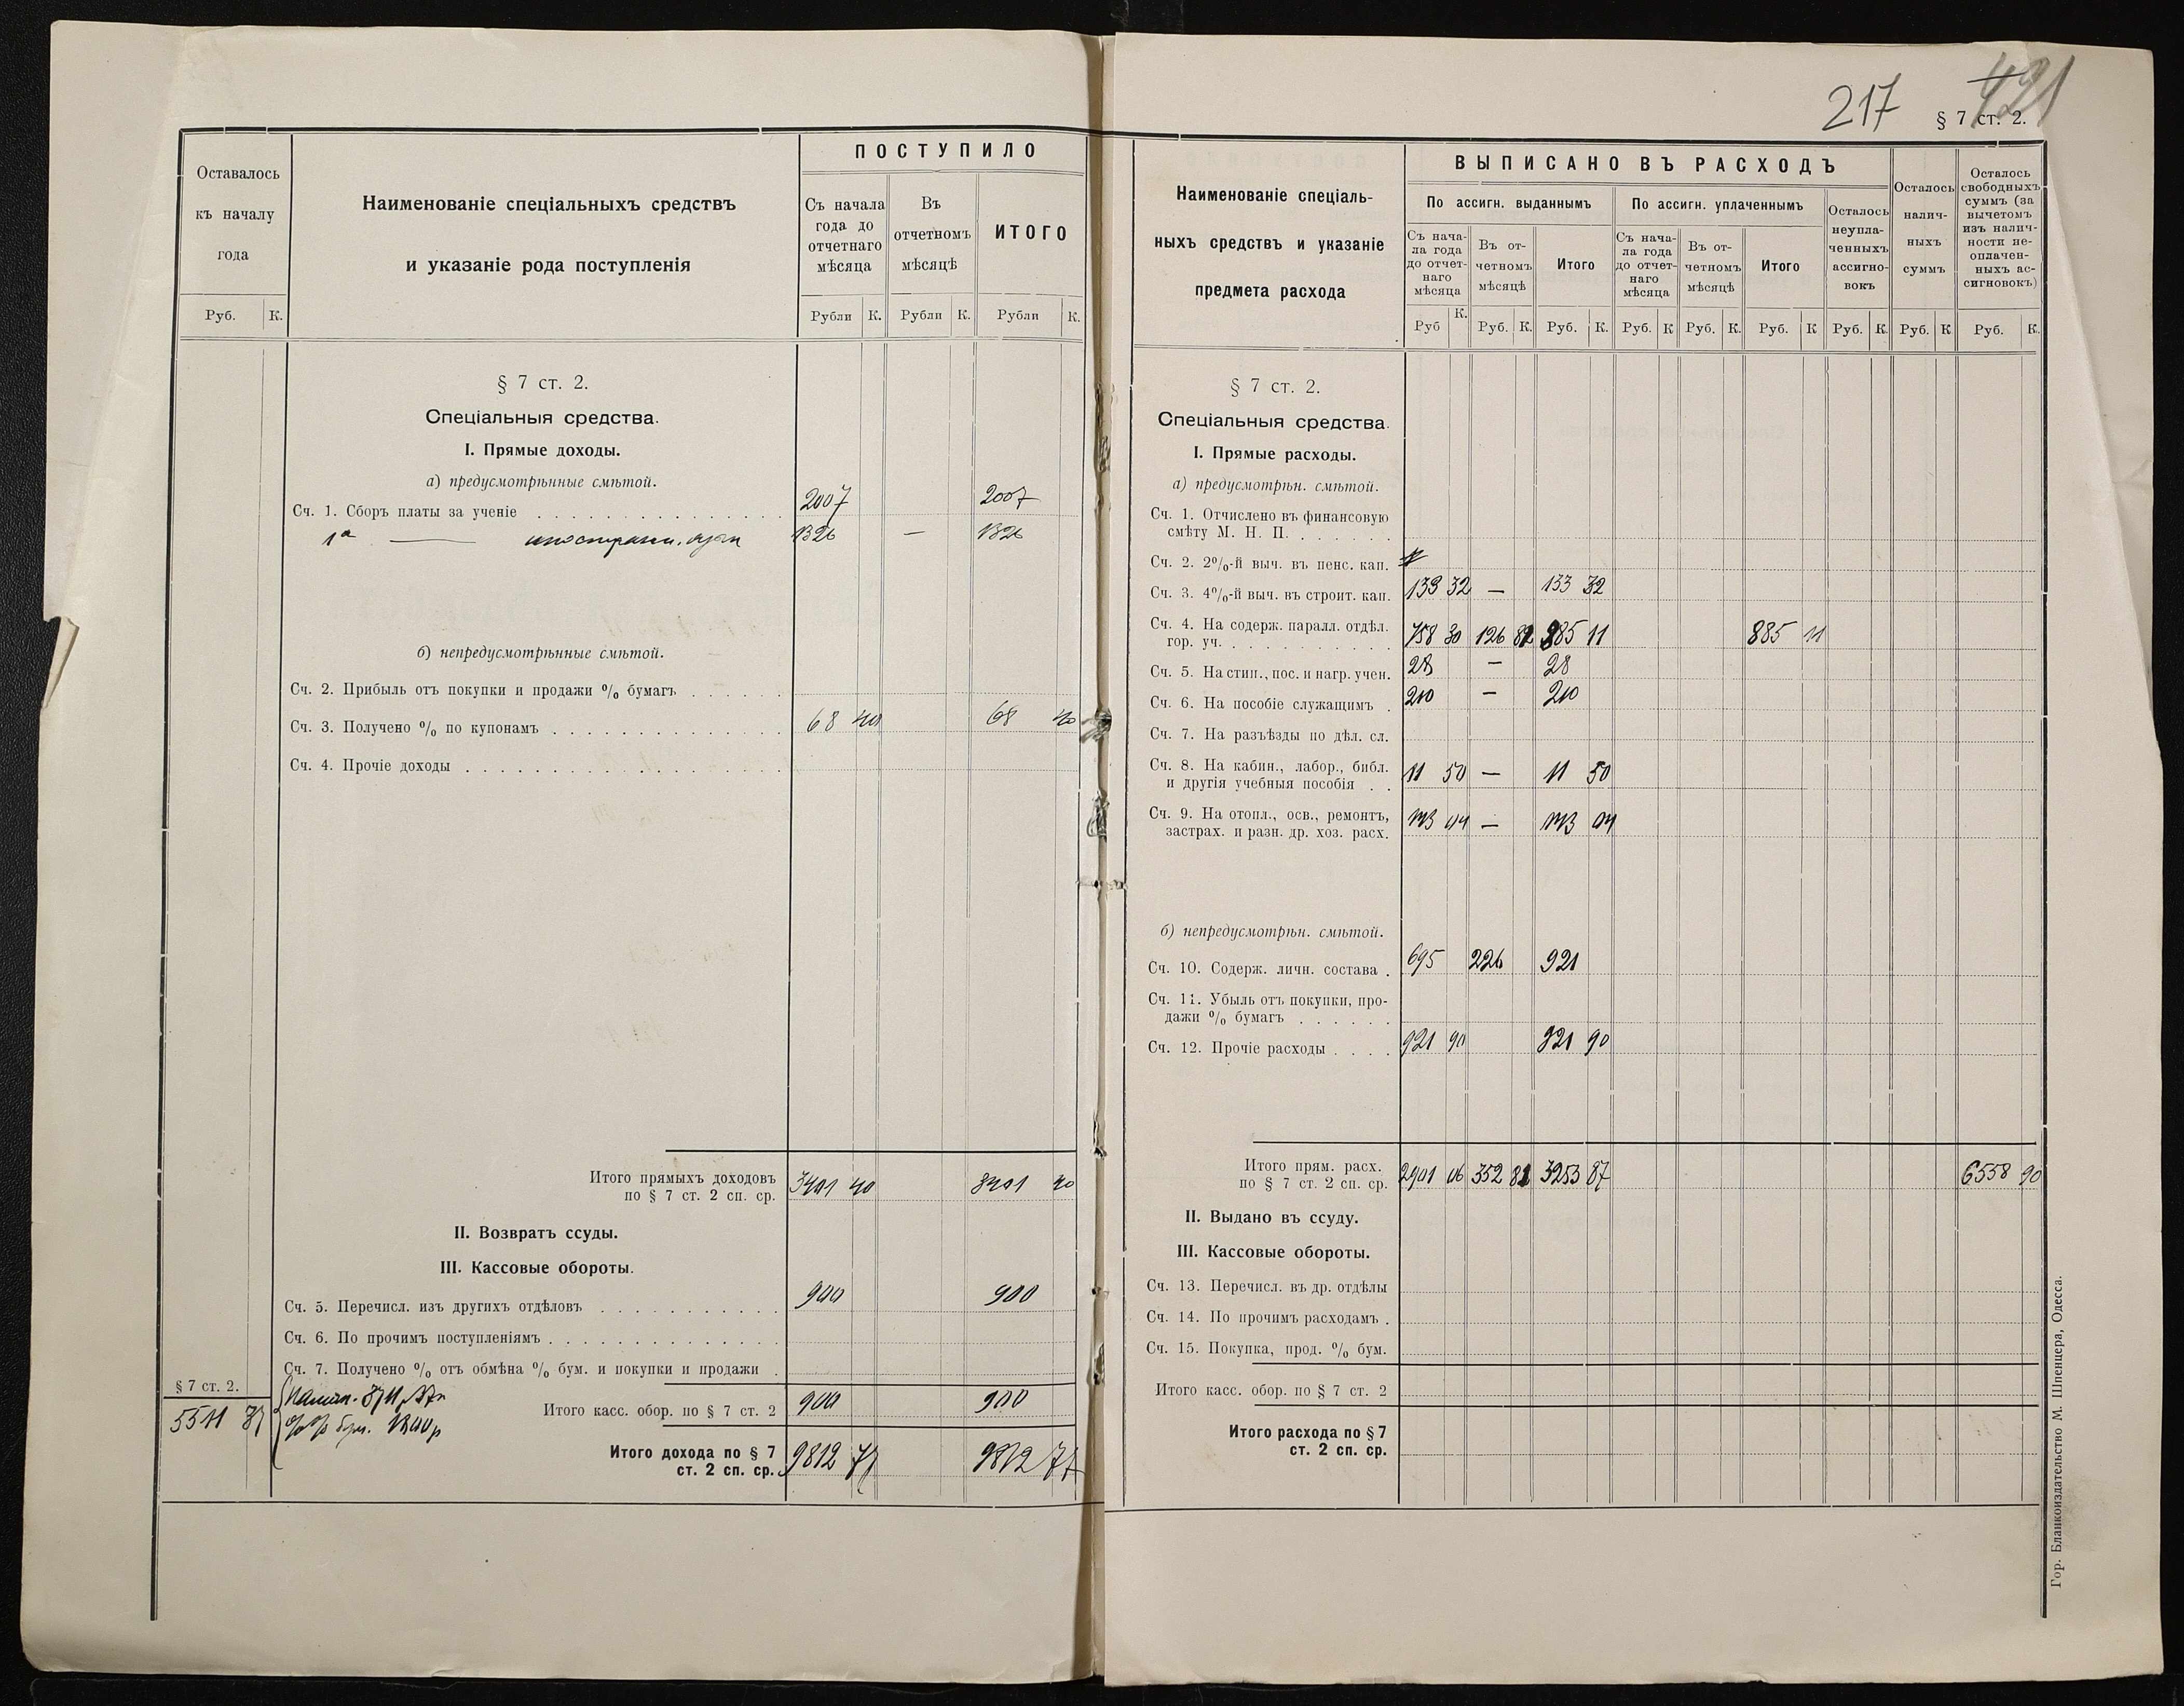 217
421
§ 7 ст. 2.
Оставалось
къ началу
года
Руб. К.
Наименованіе спеціальныхъ средствъ
и указаніе рода поступленія
ПОСТУПИЛО
Съ начала
года до
отчетнаго
мѣсяца
Въ
отчетномъ
мѣсяцѣ
ИТОГО
Рубли К. Рубли К. Рубли К.
§ 7 ст. 2.
Спеціальныя средства.
I. Прямые доходы.
а) предусмотрѣнные смѣтой.
Сч. 1. Сборъ платы за ученіе 2007 2007
1а — иностранн. язык 1326 — 1326
б) непредусмотрѣнные смѣтой.
Сч. 2. Прибыль отъ покупки и продажи % бумагъ
Сч. 3. Получено % по купонамъ 68 40 68 40
Сч. 4. Прочіе доходы
Итого прямыхъ доходовъ
по § 7 ст. 2 сп. ср. 3401 40 3401 40
II. Возвратъ ссуды.
III. Кассовые обороты.
Сч. 5. Перечисл. изъ другихъ отдѣловъ 900 900
Сч. 6. По прочимъ поступленіямъ
Сч. 7. Получено % отъ обмѣна % бум. и покупки и продажи
§ 7 ст. 2.
5511 37
Итого касс. обор. по § 7 ст. 2 900 900
Итого дохода по § 7
ст. 2 сп. ср. 9812 77 9812 77
Наименованіе спеціаль-
ныхъ средствъ и указаніе
предмета расхода
ВЫПИСАНО ВЪ РАСХОДЪ
По ассигн. выданнымъ
По ассигн. уплаченнымъ
Съ нача-
ла года
до отчет-
наго
мѣсяца
Въ от-
четномъ
мѣсяцѣ
Итого
Съ нача-
ла года
до отчет-
наго
мѣсяца
Въ от-
четномъ
мѣсяцѣ
Итого
Осталось
неупла-
ченныхъ
ассигно-
вокъ
Осталось
налич-
ныхъ
суммъ
Осталось
свободныхъ
суммъ (за
вычетомъ
изъ налич-
ности не-
оплачен-
ныхъ ас-
сигновокъ)
Руб К. Руб. К. Руб. К. Руб. К Руб. К. Руб. К Руб. К. Руб. К Руб. К.
§ 7 ст. 2.
Спеціальныя средства.
I. Прямые расходы.
а) предусмотрѣн. смѣтой.
Сч. 1. Отчислено въ финансовую
смѣту М. Н. П.
Сч. 2. 2%-й выч. въ пенс. кап.
Сч. 3. 4%-й выч. въ строит. кап. 133 32 — 133 32
Сч. 4. На содерж. паралл. отдѣл.
гор. уч. 758 30 126 81 885 11 885 11
Сч. 5. На стип., пос. и нагр. учен. 28 — 28
Сч. 6. На пособіе служащимъ 210 — 210
Сч. 7. На разъѣзды по дѣл. сл.
Сч. 8. На кабин., лабор., библ.
и другія учебныя пособія 11 50 — 11 50
Сч. 9. На отопл., осв., ремонтъ,
застрах. и разн. др. хоз. расх. 143 04 — 143 04
б) непредусмотрѣн. смѣтой.
Сч. 10. Содерж. личн. состава 695 226 921
Сч. 11. Убыль отъ покупки, про-
дажи % бумагъ
Сч. 12. Прочіе расходы 921 90 921 90
Итого прям. расх.
по § 7 ст. 2 сп. ср. 2901 06 352 81 3253 87 6558 90
II. Выдано въ ссуду.
III. Кассовые обороты.
Сч. 13. Перечисл. въ др. отдѣлы
Сч. 14. По прочимъ расходамъ
Сч. 15. Покупка, прод. % бум.
Итого касс. обор. по § 7 ст. 2
Итого расхода по § 7
ст. 2 сп. ср.
Гор. Бланкоиздательство М. Шпенцера, Одесса.